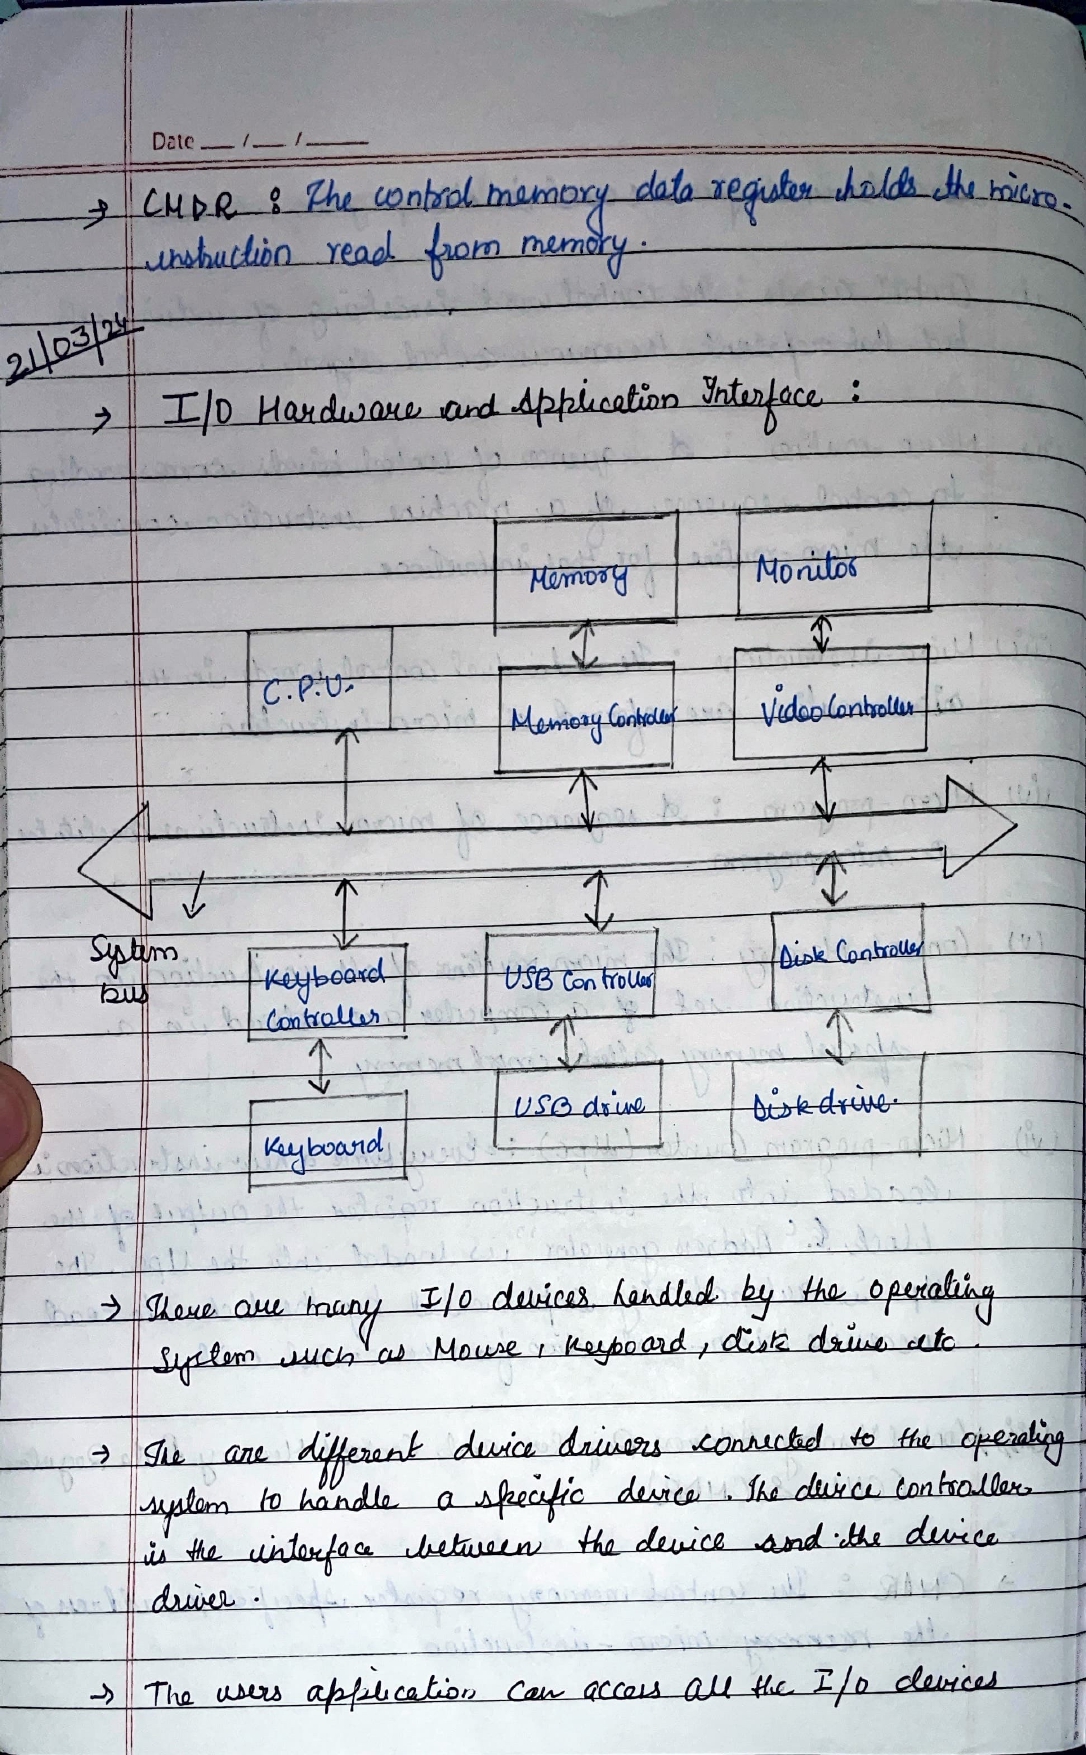 Date __/__/____
→ CMDR : The control memory data register holds the micro-
instruction read from memory.
21/03/24
→ I/O Hardware and Application Interface :
Memory
Monitor
C.P.U.
Memory Controller
Video Controller
System
bus
Keyboard
Controller
USB Controller
Disk Controller
Keyboard
USB drive
Disk drive.
→ There are many I/O devices handled by the operating
system such as Mouse, Keyboard, disk drive etc.
→ The are different device drivers connected to the operating
system to handle a specific device. The device controller
is the interface between the device and the device
driver.
→ The users application can access all the I/O devices